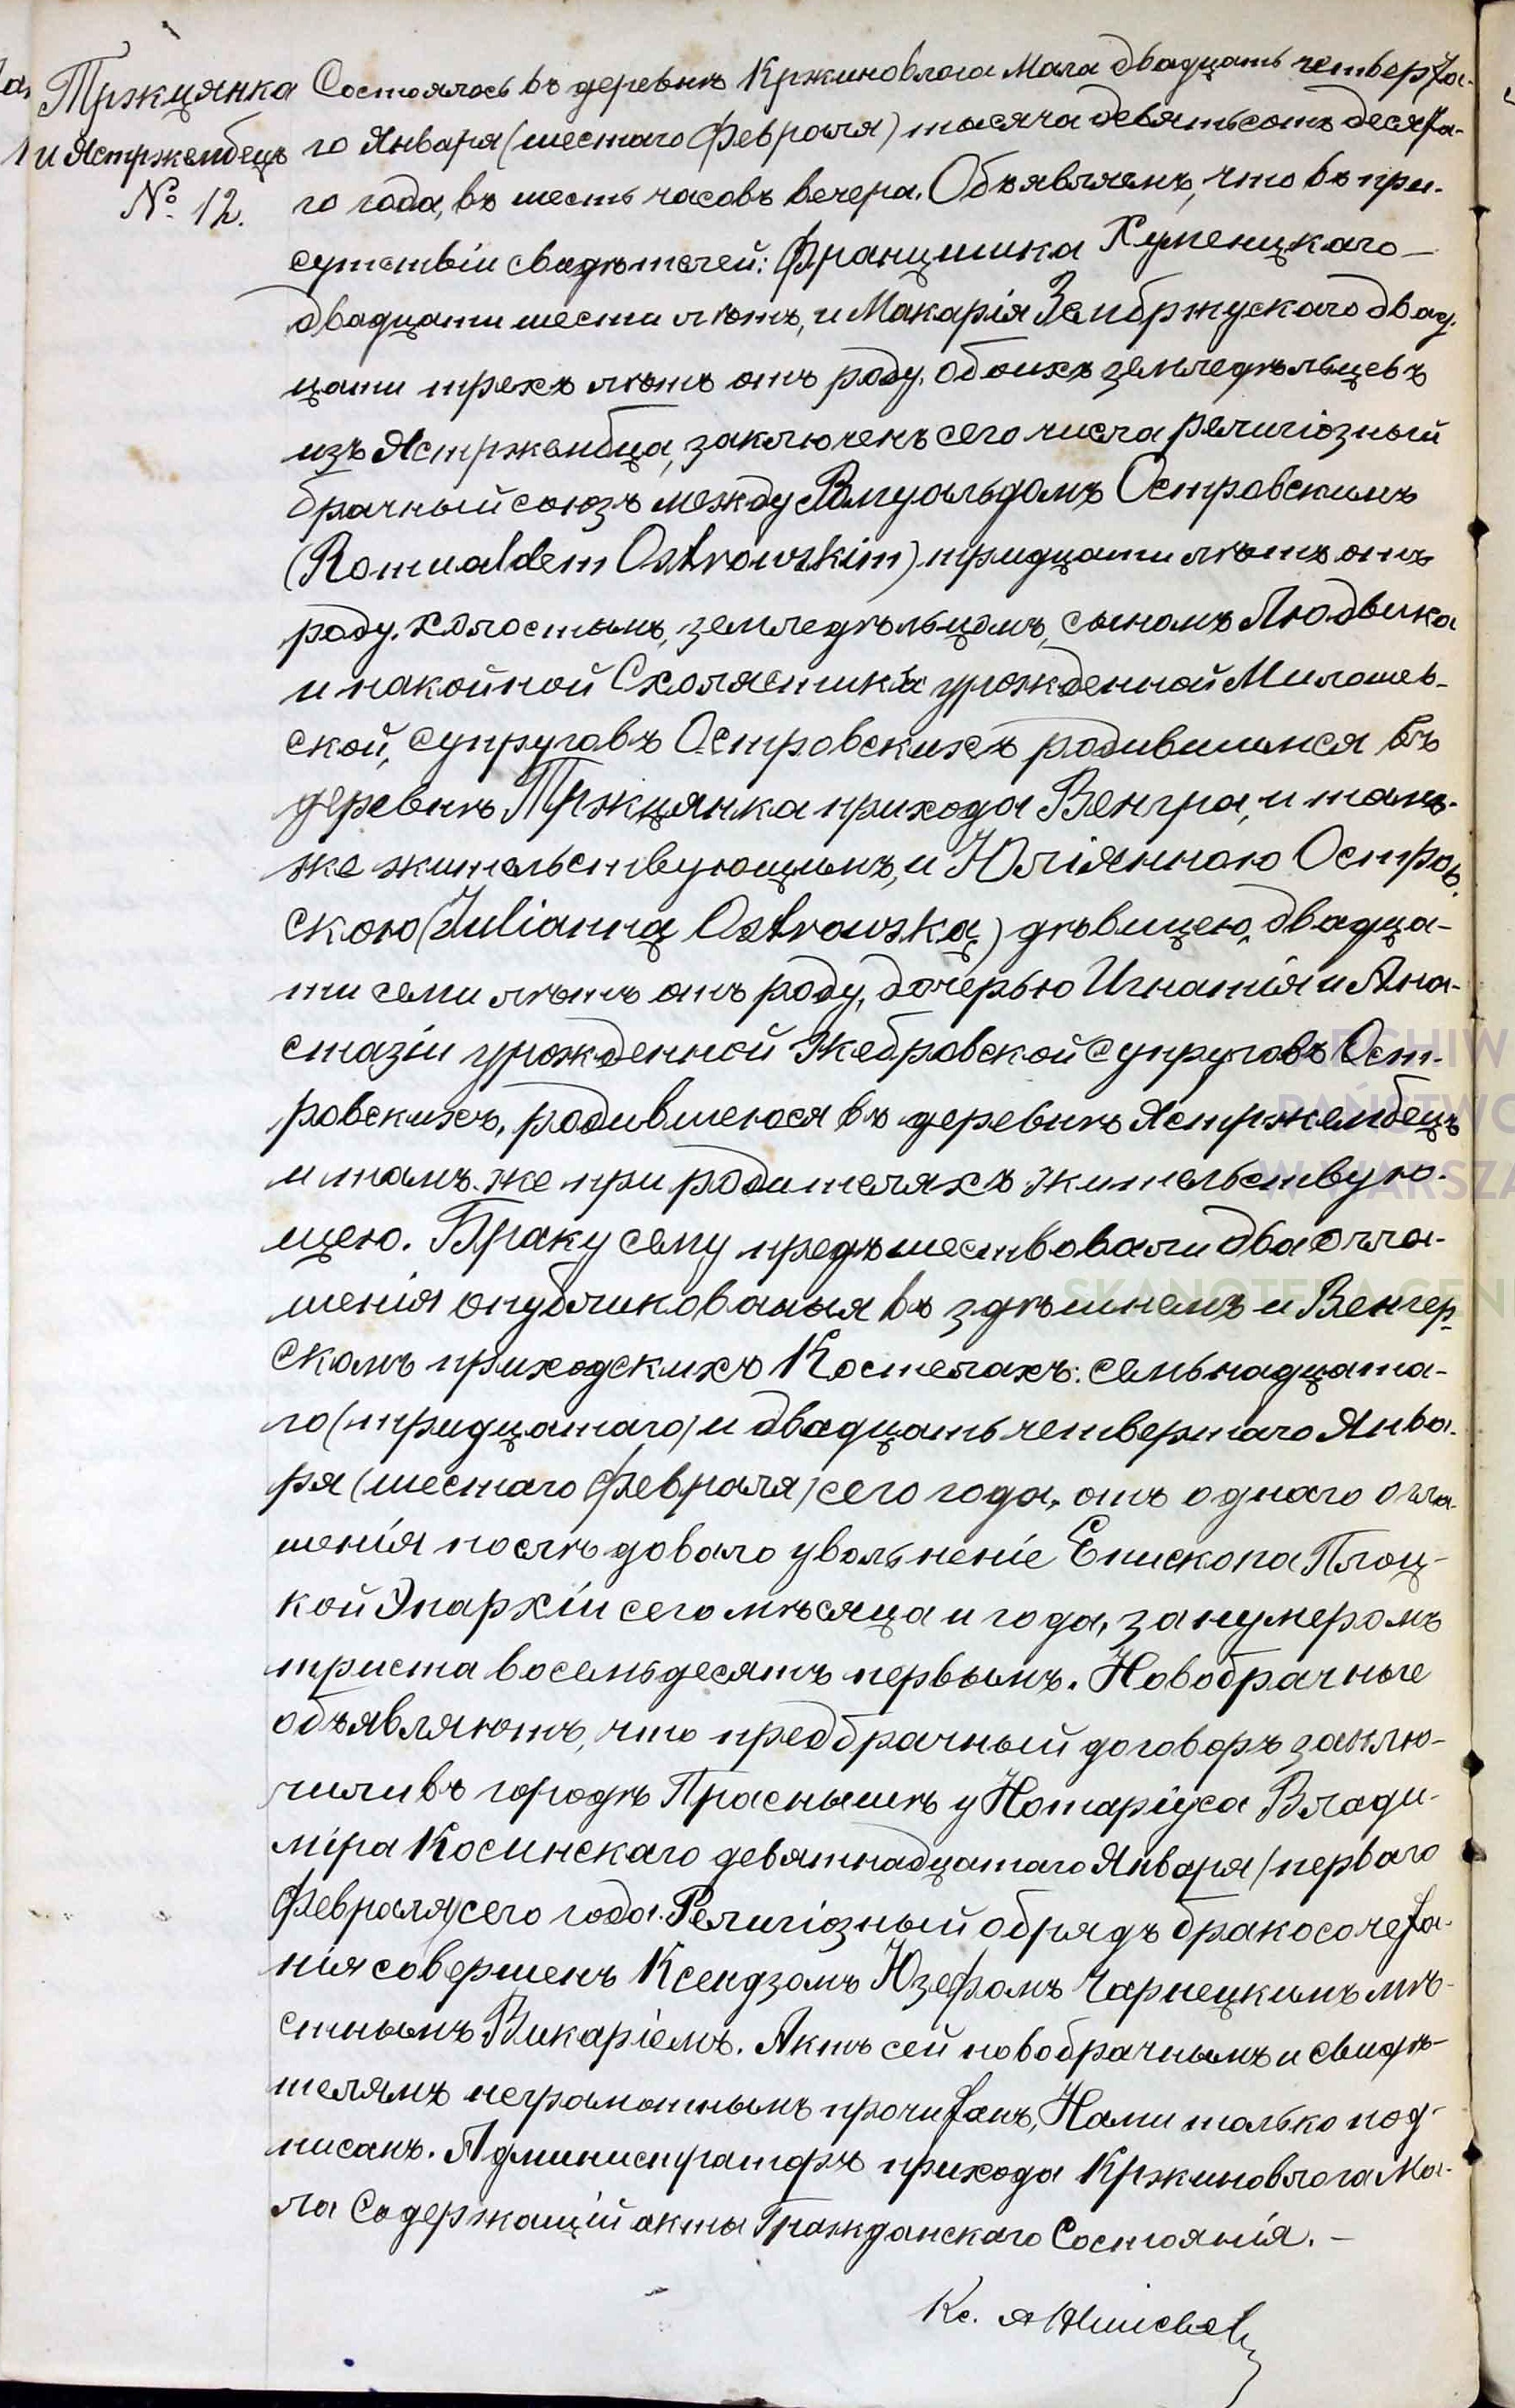 Тржцянка
и Ястржембецъ
№ 12.
Состоялось въ деревнѣ Кржиновлога Мала двадцать четверта-
го Января (шестаго Февраля) тысяча девятьсотъ десята-
го года, въ шесть часовъ вечера. Объявляемъ, что въ при-
сутствіи свидѣтелей: Францишка Хуменицкаго —
двадцати шести лѣтъ, и Макарія Зембржускаго двад-
цати трехъ лѣтъ отъ роду, обоихъ земледѣльцевъ
изъ Ястржембца, заключенъ сего числа религіозный
брачный союзъ между Ромуальдомъ Островскимъ
(Romualdem Ostrowskim) тридцати лѣтъ отъ
роду, холостымъ, земледѣльцомъ, сыномъ Людвика
и покойной Схолястики урожденной Милошев-
ской, супруговъ Островскихъ родившимся въ
деревнѣ Тржцянка прихода Венгра, и тамъ-
же жительствующимъ, и Юліянною Островс-
скою (Julianną Ostrowską) дѣвицею, двадца-
ти семи лѣтъ отъ роду, дочерью Игнатія и Ана-
стазіи урожденной Жебровской супруговъ Ост-
ровскихъ, родившеюся въ деревнѣ Ястржембецъ
и тамъ-же при родителяхъ жительствую-
щею. Браку сему предшествовали два огла-
шенія опубликованыя въ здѣшнемъ и Венгер-
скомъ приходскихъ Костелахъ: семьнадцата-
го (тридцатаго) и двадцать четвертаго Янва-
ря (шестаго Февраля) сего года, отъ одного огла-
шенія послѣдовало увольненіе Епископа Плоц-
кой Эпархіи сего мѣсяца и года, за нумеромъ
триста восемьдесятъ первымъ. Новобрачные
объявляютъ, что предбрачный договоръ заклю-
чили въ городѣ Праснышѣ у Нотаріуса Влади-
міра Косинскаго девятнадцатаго Января (перваго
Февраля) сего года. Религіозный обрядъ бракосочета-
нія совершенъ Ксендзомъ Юзефомъ Чарнецкимъ мѣ-
стнымъ Викаріемъ. Актъ сей новобрачнымъ и свидѣ-
телямъ неграмотнымъ прочитанъ, Нами только под-
писанъ. Администраторъ прихода Кржиновлога Ма-
ла Содержащій акты Гражданскаго Состоянія. —
Кс.
ARCHIW
PAŃSTWO
W WARSZA
SKANOTEKA GEN